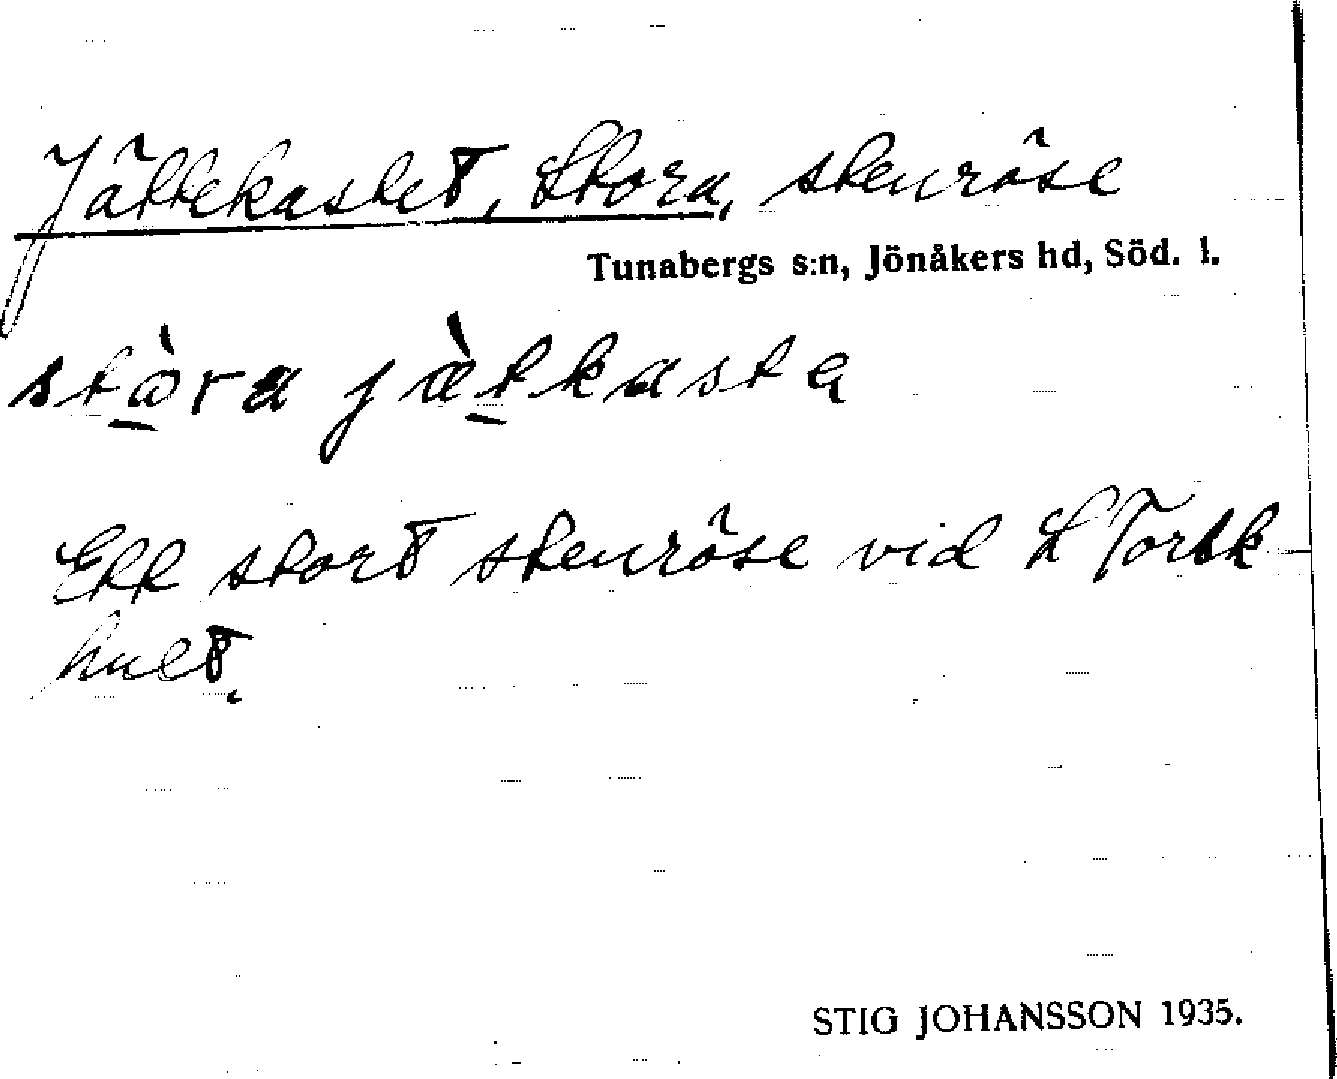 Jättekastet, Stora, stenröse
Tunabergs s:n, Jönåkers hd, Söd. l.
stò̱ra jæ̀ṯkasta
Ett stort stenröse vid L Torsk-
hult.
STIG JOHANSSON 1935.